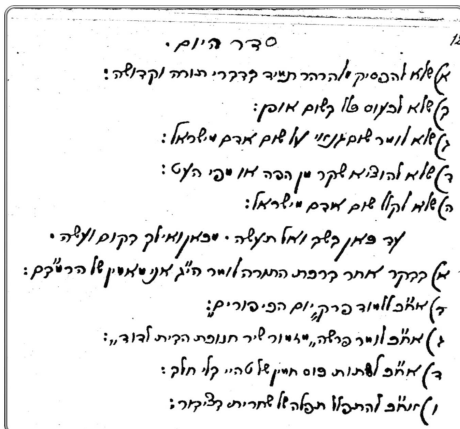 סדר היום.
א) שלא להפסיק מלהרהר תמיד בדברי תורה וקדושה:
ב) שלא לכעוס כלל בשום אופן:
ג) שלא לומר שום גנאי על שום אדם מישראל:
ד) שלא להוציא שקר מן הפה או מפי העט:
ה) שלא לקלל שום אדם מישראל:
עד כאן בשב ואל תעשה. מכאן ואילך בקום ועשה.
א) בבקר אחר ברכת התורה לומר הי"ג אני מאמין של הרמב"ם:
ב) אח"כ ללמוד פרק "יום הכיפורים":
ג) אח"כ לומר פרשה "מזמור שיר חנוכת הבית לדוד":
ד) אח"כ לשתות כוס חמין של טהיי בלי חלב:
ו) ואח"כ להתפלל תפלה של שחרית בציבור: